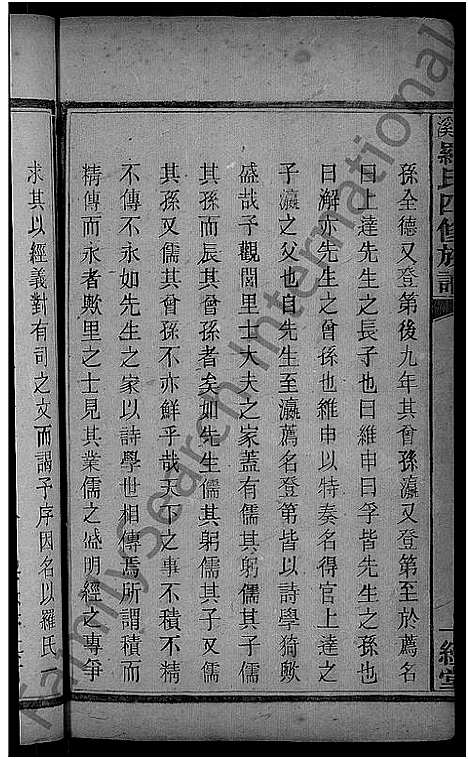 溪羅氏四修族譜
一經堂
孫全德又登第後九年其曾孫瀛又登第至於薦名
曰上達先生之長子也曰維申曰孚皆先生之孫也
曰澥亦先生之曾孫也維申以特奏名得官上達之
子瀛之父也自先生至瀛薦名登第皆以詩學猗歟
盛哉予觀閭里士大夫之家蓋有儒其躬儒其子儒
其孫而辰其曾孫者矣如先生儒其躬儒其子又儒
其孫又儒其曾孫不亦鮮乎哉天下之事不積不精
不傳不永如先生之家以詩學世相傳焉所謂積而
精傳而永者歟里之士見其業儒之盛明經之專爭
求其以經義對有司之文而謁予序因名以羅氏一
FamilySearch International